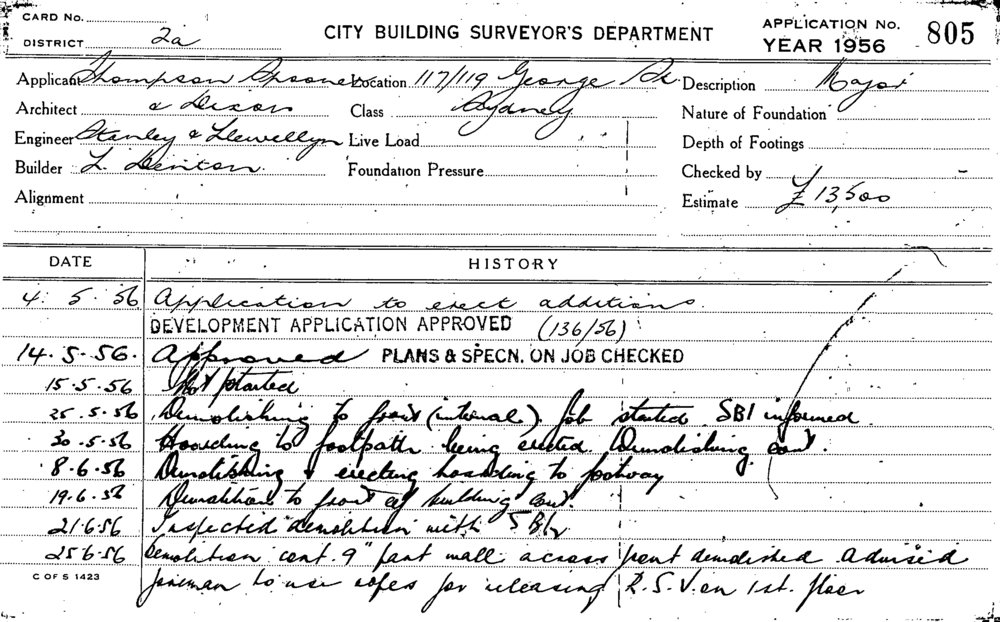 CARD No.
DISTRICT 2a
CITY BUILDING SURVEYOR'S DEPARTMENT
APPLICATION No. 805
YEAR 1956
Applicant Thompson Spooner Location 117/119 George St. Description Major
Architect & Dixon Class Sydney Nature of Foundation
Engineer Stanley & Llewellyn Live Load Depth of Footings
Builder L. Denton. Foundation Pressure Checked by
Alignment Estimate £13,500
DATE HISTORY
4. 5. 56 Application to erect additions.
DEVELOPMENT APPLICATION APPROVED (136/56)
14.5.56. Approved PLANS & SPECN. ON JOB CHECKED
15.5.56 Not started
25.5.56 Demolishing to front (internal) job started SBI informed
30.5.56 Hoarding to footpath being erected. Demolishing cont.
8.6.56 Demolishing & erecting hoarding to footway
19.6.56 Demolition to front of building cont.
21.6.56 Inspected demolition with
25.6.56 Demolition cont. 9" part wall across front demolished advised
foreman to use ropes for releasing R.S.V. on 1st. floor
C OF S 1423